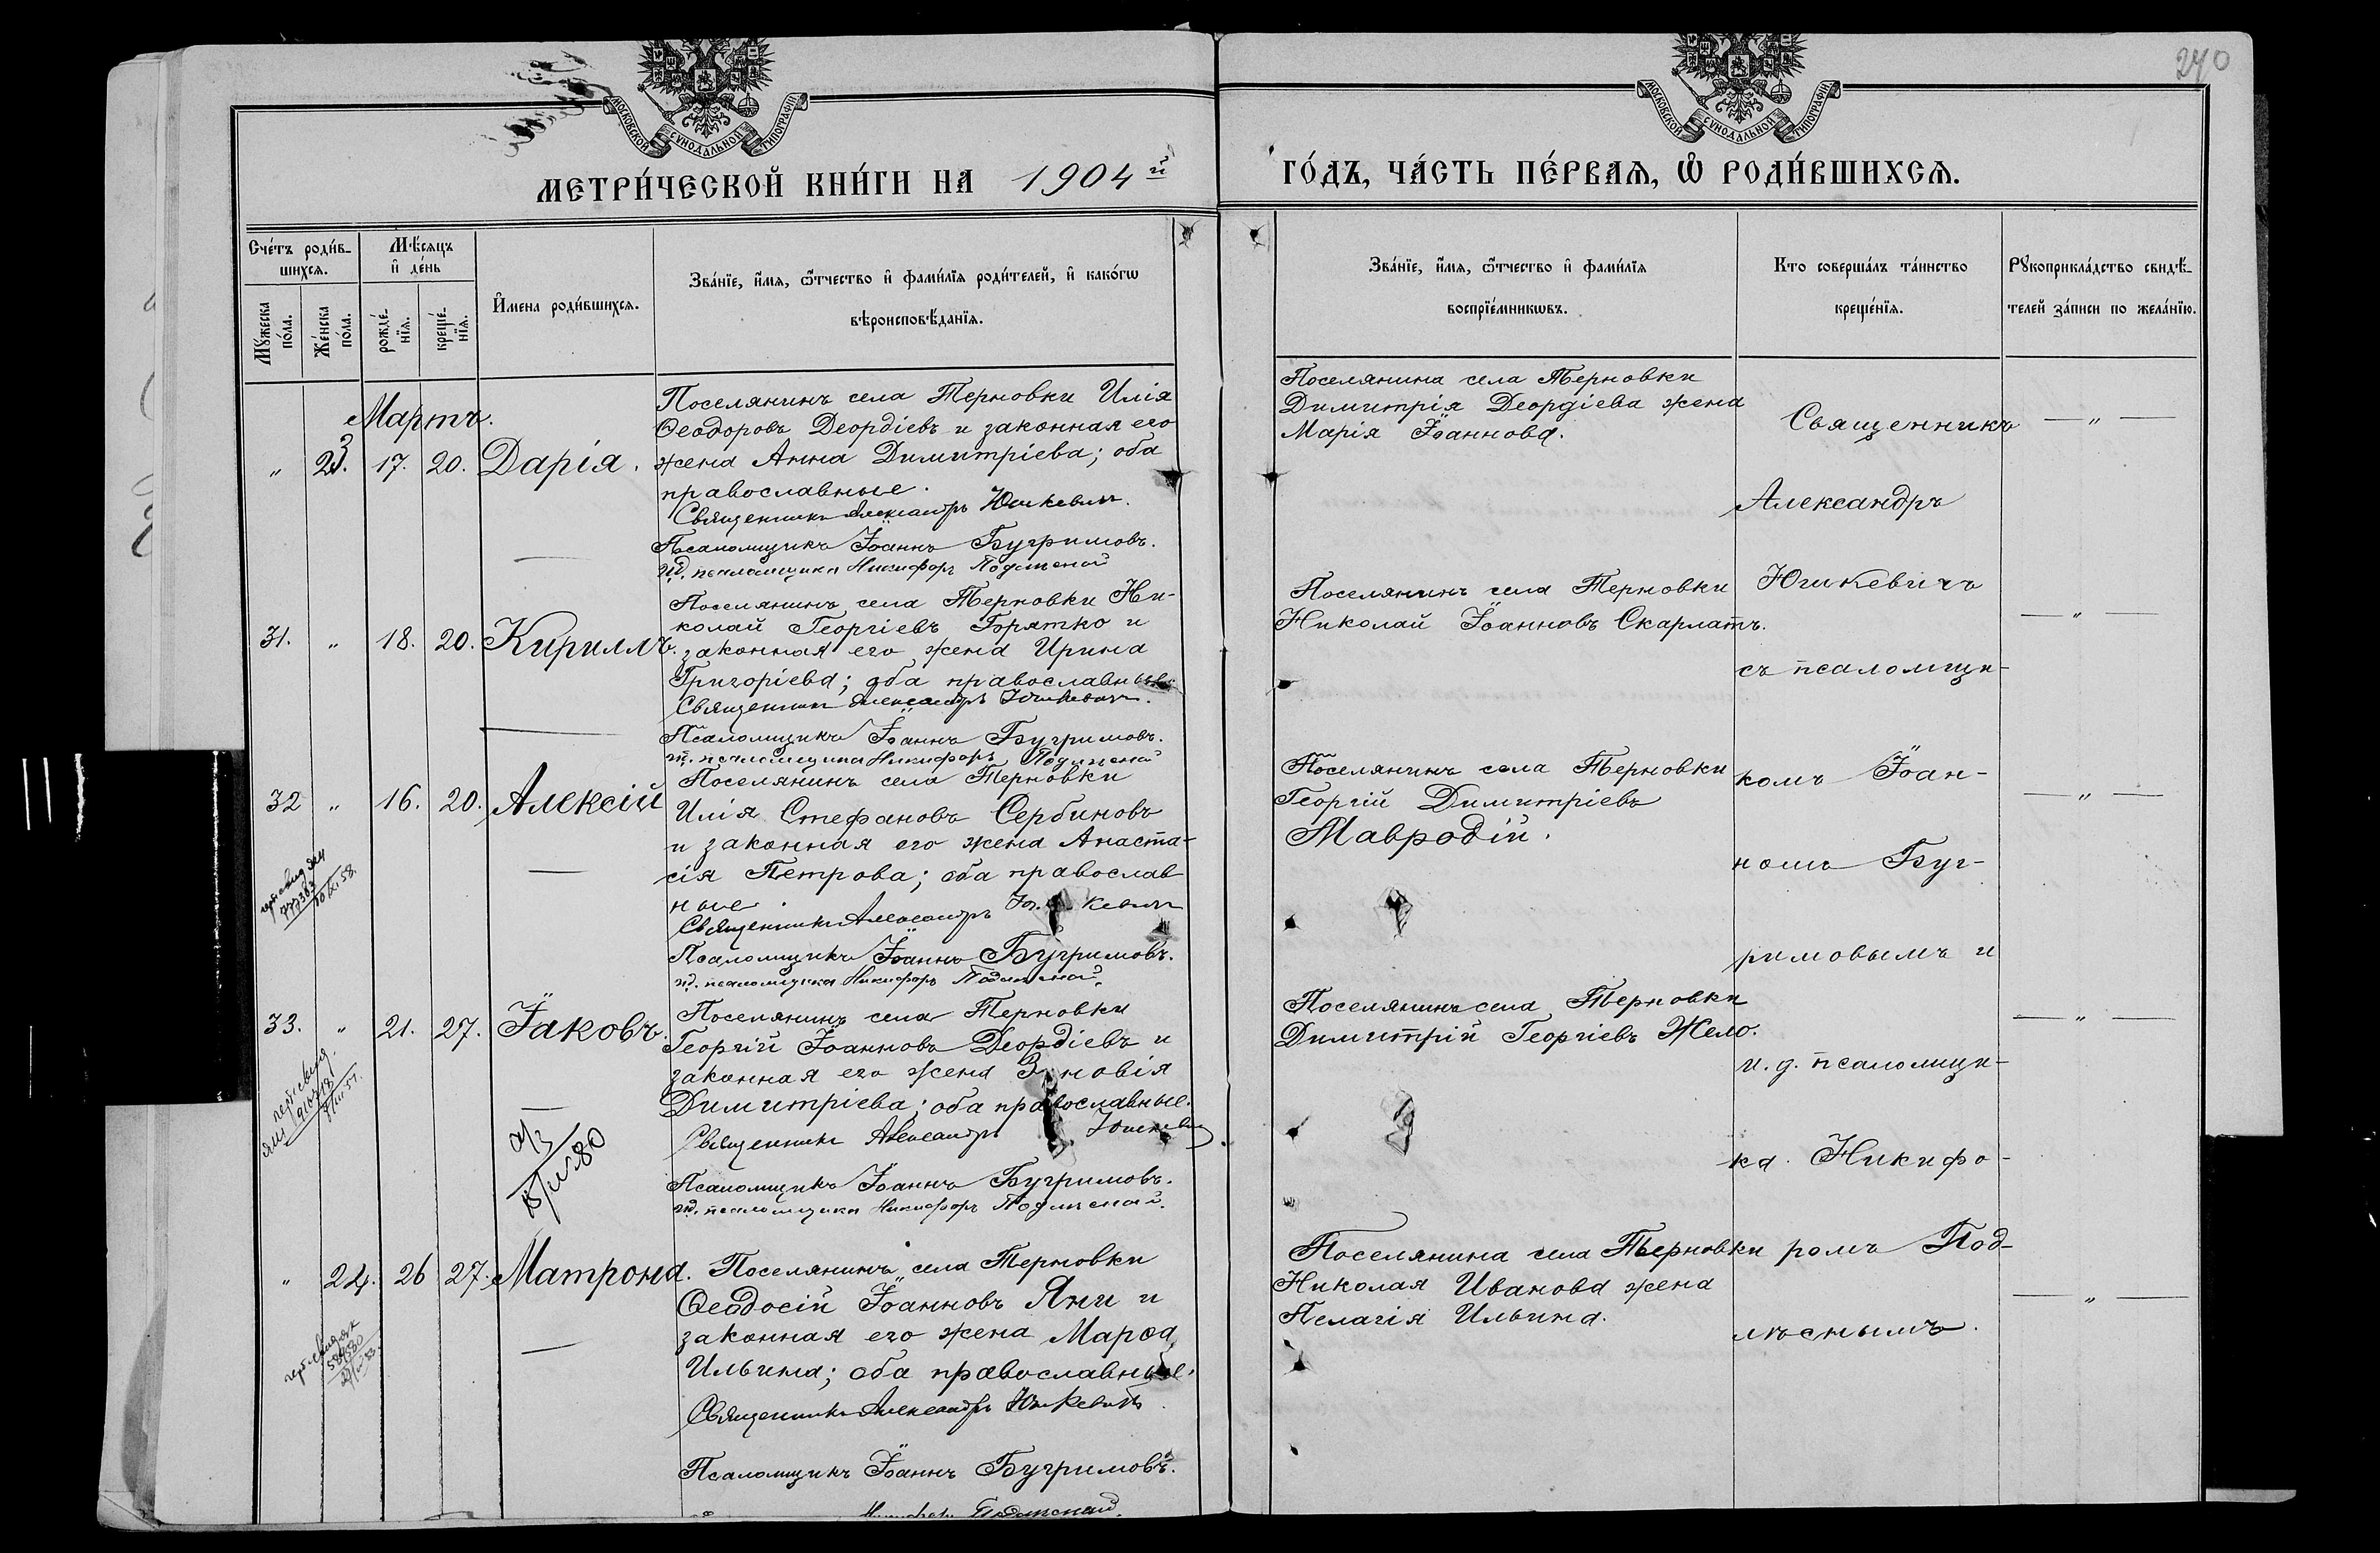 270
МОСКОВСКОЙ СѴНОДАЛЬНОЙ ТИПОГРАФІИ
МОСКОВСКОЙ СѴНОДАЛЬНОЙ ТИПОГРАФІИ
МЕТРИ́ЧЕСКОЙ КНИ́ГИ НА 1904й
ГО́ДЪ, ЧА́СТЬ ПЕ́РВАѦ, Ѡ҆ РОДИ́ВШИХСѦ.
Сче́тъ роди́в-
шихсѧ.
Мꙋжеска по́ла.
Же́нска по́ла.
Мѣ́сѧцъ
и҆ де́нь
рожде́-
нїѧ.
креще́-
нїѧ.
И҆мена роди́вшихсѧ.
Зва́нїе, и҆́мѧ, ѻ҆́тчество и҆ фами́лїѧ роди́телей, и҆ како́гѡ
вѣроисповѣ́данїѧ.
Зва́нїе, и҆́мѧ, ѻ҆́тчество и҆ фами́лїѧ
воспрїе́мникѡвъ.
Кто соверша́лъ та́инство
креще́нїѧ.
Рꙋкоприкла́дство свидѣ́-
телей за́писи по жела́нїю.
Мартъ.
" 23. 17. 20. Дарія.
Поселянинъ села Терновки Илія
Ѳеодоровъ Деордіевъ и законная его
жена Анна Димитріева; оба
православные.
Священникъ Александръ Юшкевичъ.
Псаломщикъ Іоаннъ Бугримовъ.
и.д. псаломщика Никифоръ Подлѣсный
Поселянина села Терновки
Димитрія Деордіева жена
Марія Іоаннова.
31. " 18. 20. Кириллъ.
Поселянинъ села Терновки Ни-
колай Георгіевъ Брятко и
законная его жена Ирина
Григоріева; оба православные.
Священникъ Александръ Юшкевичъ.
Псаломщикъ Іоаннъ Бугримовъ.
и.д. псаломщика Никифоръ Подлѣсный
Поселянинъ села Терновки
Николай Іоанновъ Скарлатъ.
32 " 16. 20. Алексій
Поселянинъ села Терновки
Илія Стефановъ Сербиновъ
и законная его жена Анаста-
сія Петрова; оба православ
ные.
Священникъ Александръ Юшкевичъ
Псаломщикъ Іоаннъ Бугримовъ.
и.д. псаломщика Никифоръ Подлѣсный.
Поселянинъ села Терновки
Георгій Димитріевъ
Мавродій.
33. " 21. 27. Іаковъ.
Поселянинъ села Терновки
Георгій Іоанновъ Деордіевъ и
законная его жена Зиновія
Димитріева; оба православные.
Священникъ Александръ Юшкевич
Псаломщикъ Іоаннъ Бугримовъ.
и.д. псаломщика Никифоръ Подлѣсный.
Поселянинъ села Терновки
Димитрій Георгіевъ Жело.
" 24. 26 27. Матрона.
Поселянинъ села Терновки
Ѳеодосій Іоанновъ Яни и
законная его жена Марѳа
Ильина; оба православные.
Священникъ Александръ Юшкевичъ.
Псаломщикъ Іоаннъ Бугримовъ.
Никифоръ Подлѣсный.
Поселянина села Терновки
Николая Иванова жена
Пелагія Ильина.
Священникъ
Александръ
Юшкевичъ
съ псаломщи-
комъ Іоан-
номъ Буг-
римовымъ и
и. д. псаломщи-
ка Никифо-
ромъ Под-
лѣснымъ.